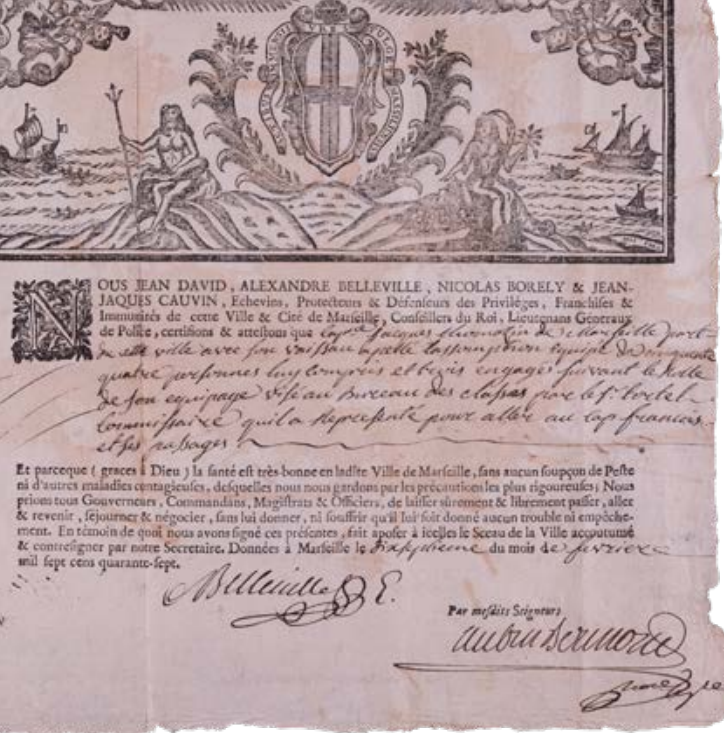 NOUS JEAN DAVID, ALEXANDRE BELLEVILLE, NICOLAS BORELY & JEAN-
JAQUES CAUVIN, Echevins, Protecteurs & Défenseurs des Privilèges, Franchises &
Immunités de cette Ville & Cité de Marseille, Conseillers du Roi, Lieutenans Généraux
de Police, certifions & attestons que Jacques de Marseille part
de cette ville avec son vaisseau apellé lassomption équipé de cinquante
quatre personnes luy compris et trois engagés suivant le Rolle
de son equipage visé au Bureau des classes par le Sr.
Commissaire quil a Representé pour aller au cap francois
et ses passages
Et parceque ( graces à Dieu ) la santé est très-bonne en ladite Ville de Marseille, sans aucun soupçon de Peste
ni d'autres maladies contagieuses, desquelles nous nous gardons par les précautions les plus rigoureuses; Nous
prions tous Gouverneurs, Commandans, Magistrats & Officiers, de laisser sûrement & librement passer, aller
& revenir, séjourner & négocier, sans lui donner, ni souffrir qu'il lui soit donné aucun trouble ni empêche-
ment. En témoin de quoi nous avons signé ces présentes, fait aposer à icelles le Sceau de la Ville accoutumé
& contresigner par notre Secretaire. Données à Marseille le dixseptieme du mois de fevrier
mil sept cens quarante-sept.
Belleville E.
Par mesdits Seigneurs